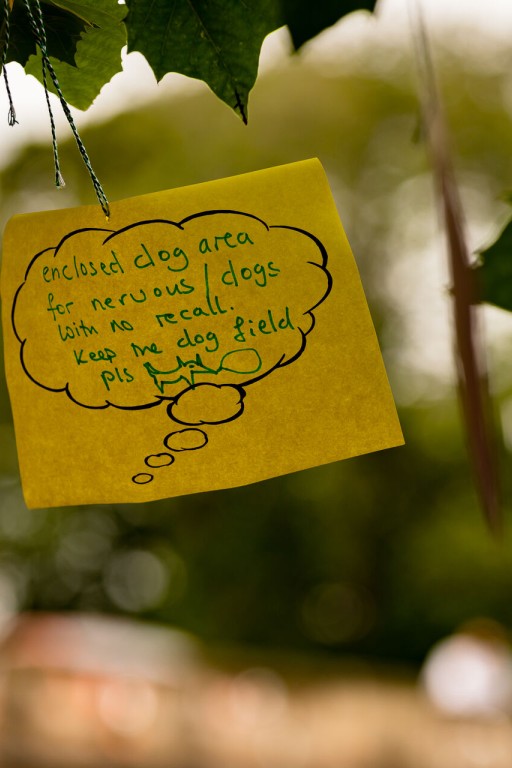 enclosed dog area
for nervous / dogs
with no recall.
Keep the dog field
pls